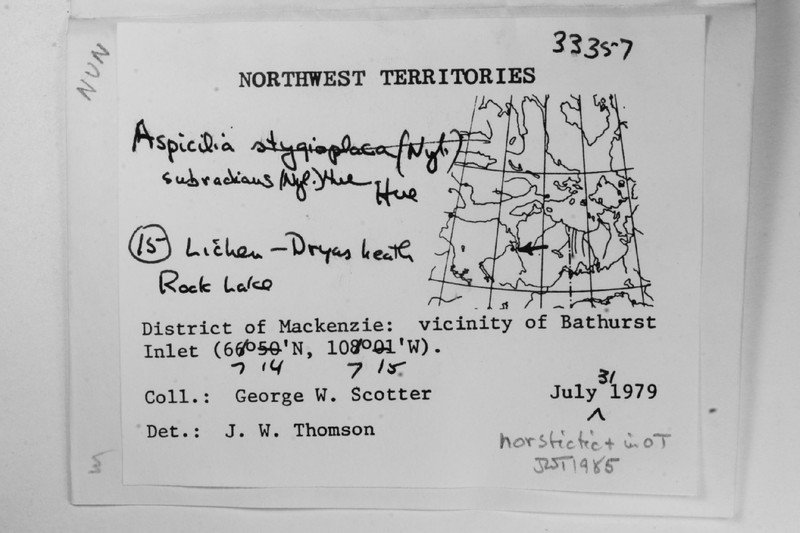 NUN
33357
NORTHWEST TERRITORIES
Aspicilia stygioplaca (Nyl.)
subradians (Nyl.) Hue
Hue
15 Lichen - Dryas heath
Rock Lake
District of Mackenzie: vicinity of Bathurst
Inlet (66°50'N, 108°01'W).
7 14 7 15
Coll.: George W. Scotter July 31 1979
Det.: J. W. Thomson
norstictic + in OT
JWT 1985